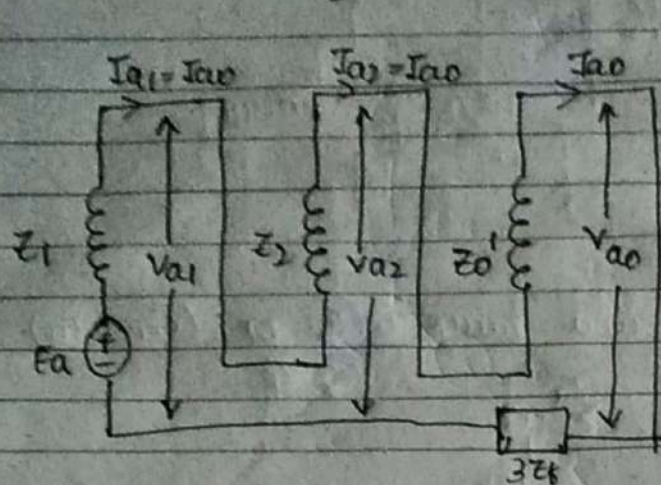 Ia1 = Ia0
Ia2 = Ia0
Ia0
Z1
Va1
Z2
Va2
Z0'
Va0
Ea
+
-
3Zf